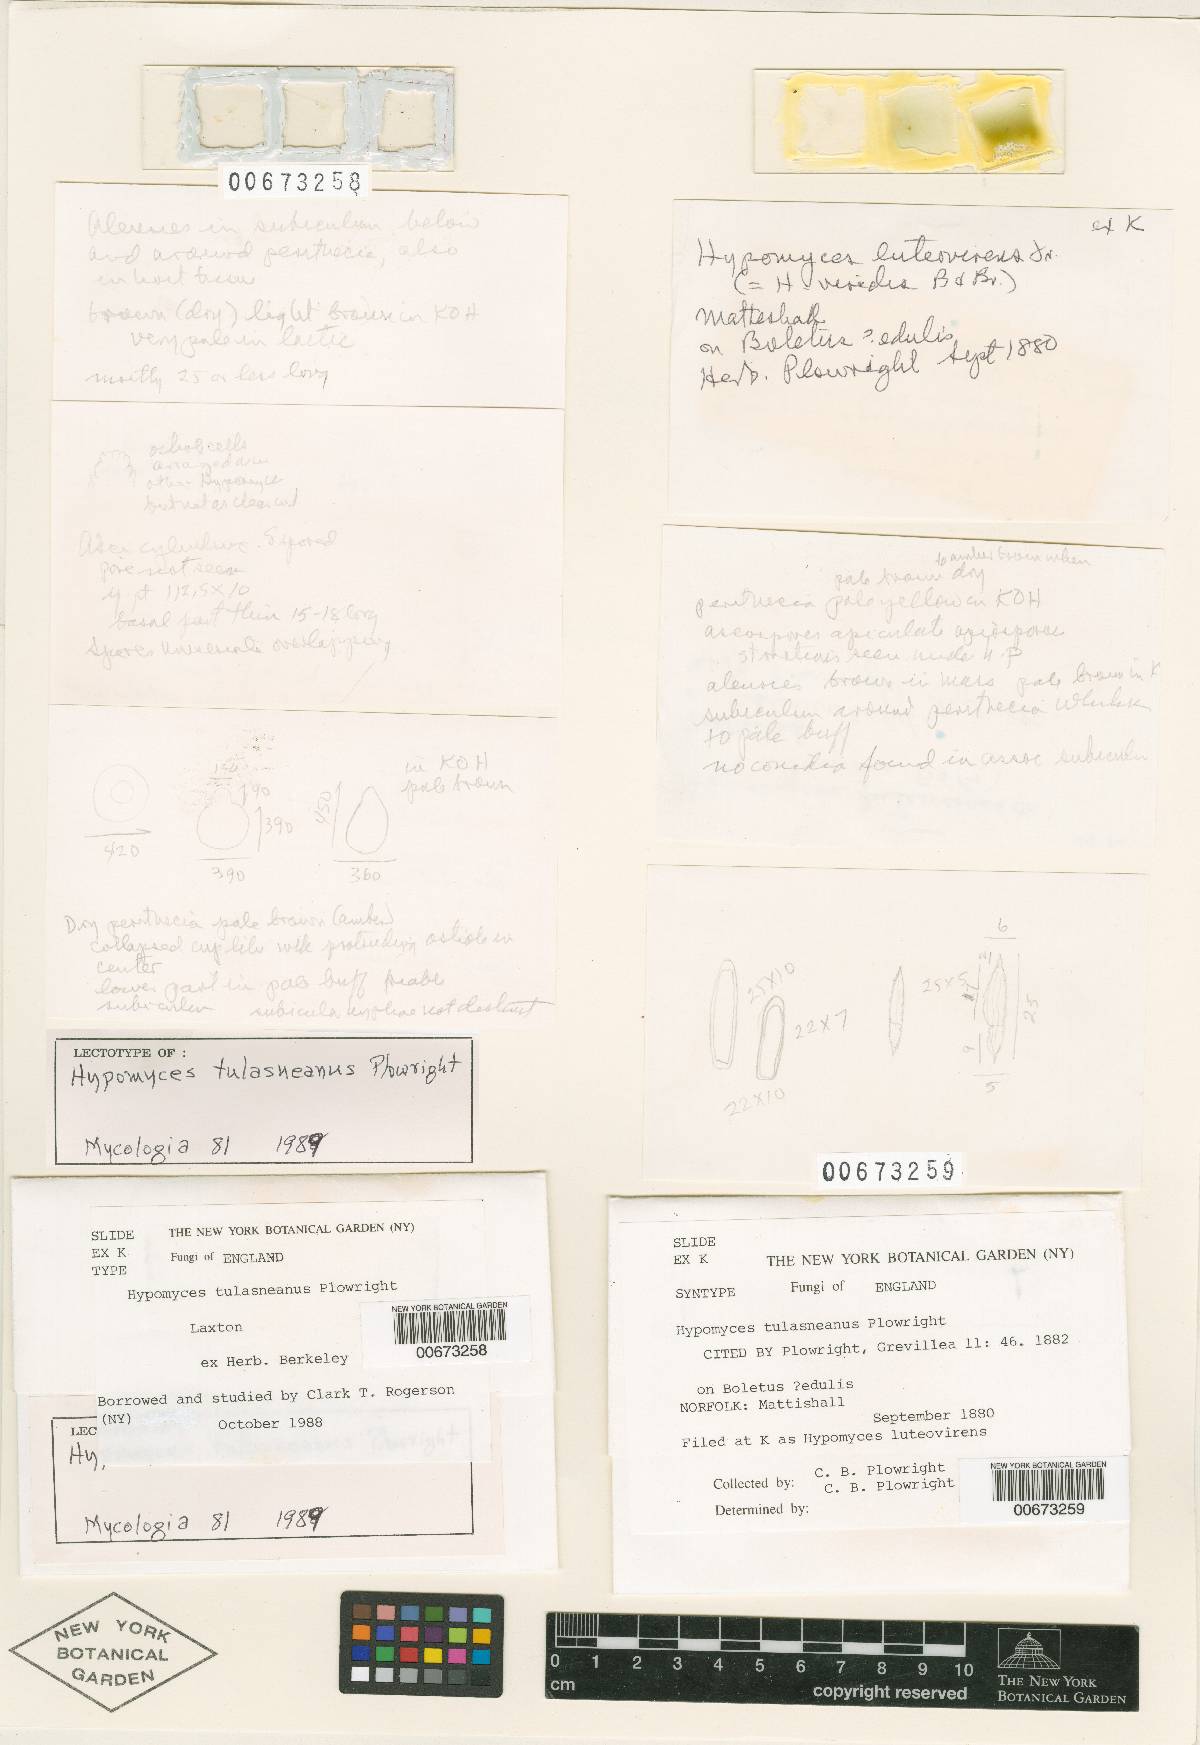 00673258
Aleuries in subiculum below
and around perithecia, also
in host tissue
brown (dry) light brown in KOH
very pale in lactic
mostly 25 or less long
ostiole cells
arranged as in
other Hypomyces
but not as clear cut
Asci cylindric 8 spored
pore not seen
112.5 x 10
basal part thin 15-18 long
Spores uniseriate overlapping
in KOH
pale brown
150
90
390
450
420
390
360
Dry perithecia pale brown (amber)
collapsed cup like with protruding ostiole in
center
lower part in pale buff
subiculum subicula hyphae not distinct
LECTOTYPE OF :
Hypomyces tulasneanus Plowright
Mycologia 81 1989
SLIDE
EX K
TYPE
THE NEW YORK BOTANICAL GARDEN (NY)
Fungi of ENGLAND
Hypomyces tulasneanus Plowright
Laxton
ex Herb. Berkeley
NEW YORK BOTANICAL GARDEN
00673258
Borrowed and studied by Clark T. Rogerson
(NY)
October 1988
LEC
Hy
Mycologia 81 1989
ex K
Hypomyces luteovirens Fr.
(= H viridis B & Br.)
Mattishall
on Boletus ?edulis
Herb. Plowright Sept 1880
to amber brown when
pale brown dry
perithecia pale yellow in KOH
ascospores apiculate apiospores
striations seen under H.P
aleuries brown in mass pale brown in K
subiculum around perithecia whitish
to pale buff
no conidia found in assoc subiculum
25x10
22x7
22x10
25x5
6
25
9
5
00673259
SLIDE
EX K
THE NEW YORK BOTANICAL GARDEN (NY)
SYNTYPE
Fungi of ENGLAND
Hypomyces tulasneanus Plowright
CITED BY Plowright, Grevillea 11: 46. 1882
on Boletus ?edulis
NORFOLK: Mattishall
September 1880
Filed at K as Hypomyces luteovirens
Collected by: C. B. Plowright
C. B. Plowright
Determined by:
NEW YORK BOTANICAL GARDEN
00673259
NEW YORK
BOTANICAL
GARDEN
0 1 2 3 4 5 6 7 8 9 10
cm
copyright reserved
THE NEW YORK
BOTANICAL GARDEN